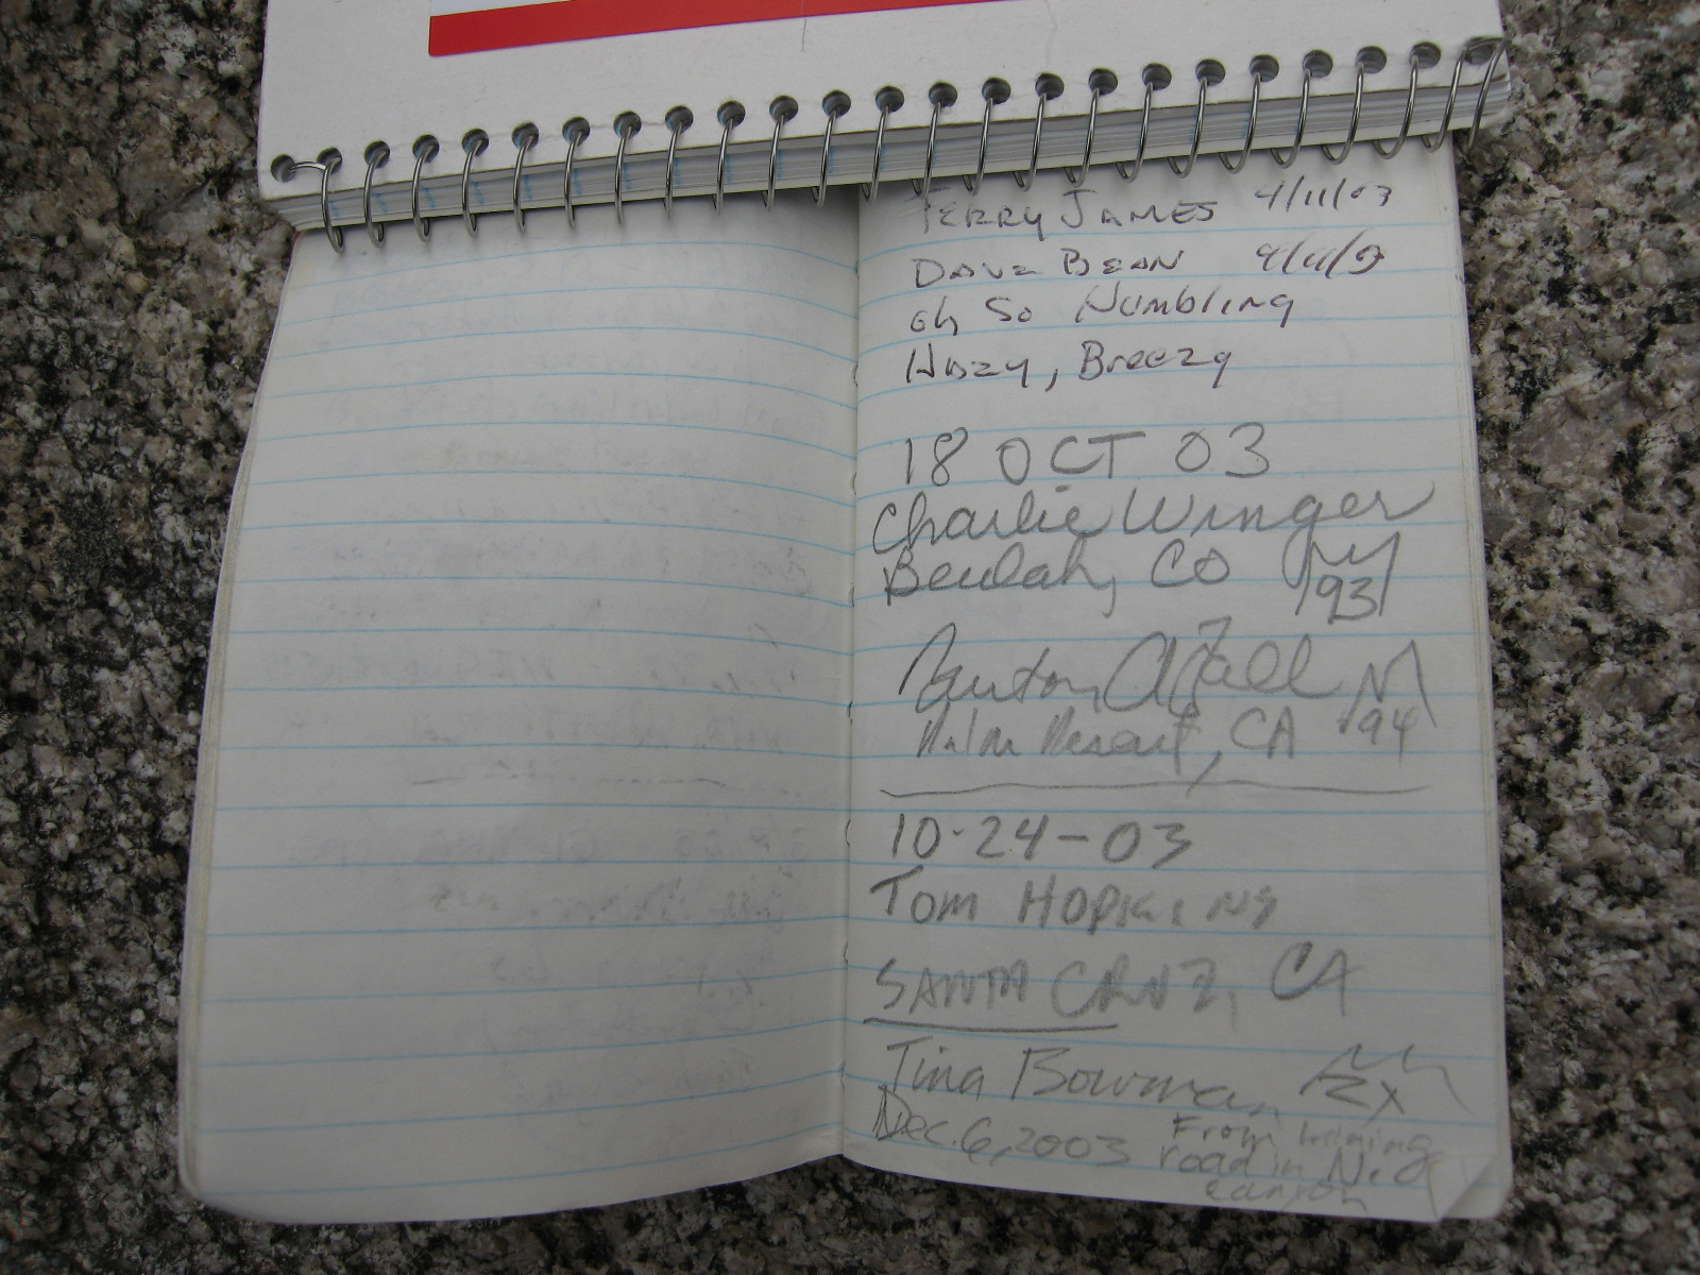 TERRY JAMES 4/11/03
DAVE BEAN 4/11/03
Oh So Humbling
Hazy, Breezy
18 OCT 03
Charlie Winger
Beulah, CO
93
94
Palm Desert, CA
10-24-03
TOM HOPKINS
SANTA CRUZ, CA
Tina Bowman
2X
Dec. 6, 2003 From mining
road in N.
canyon